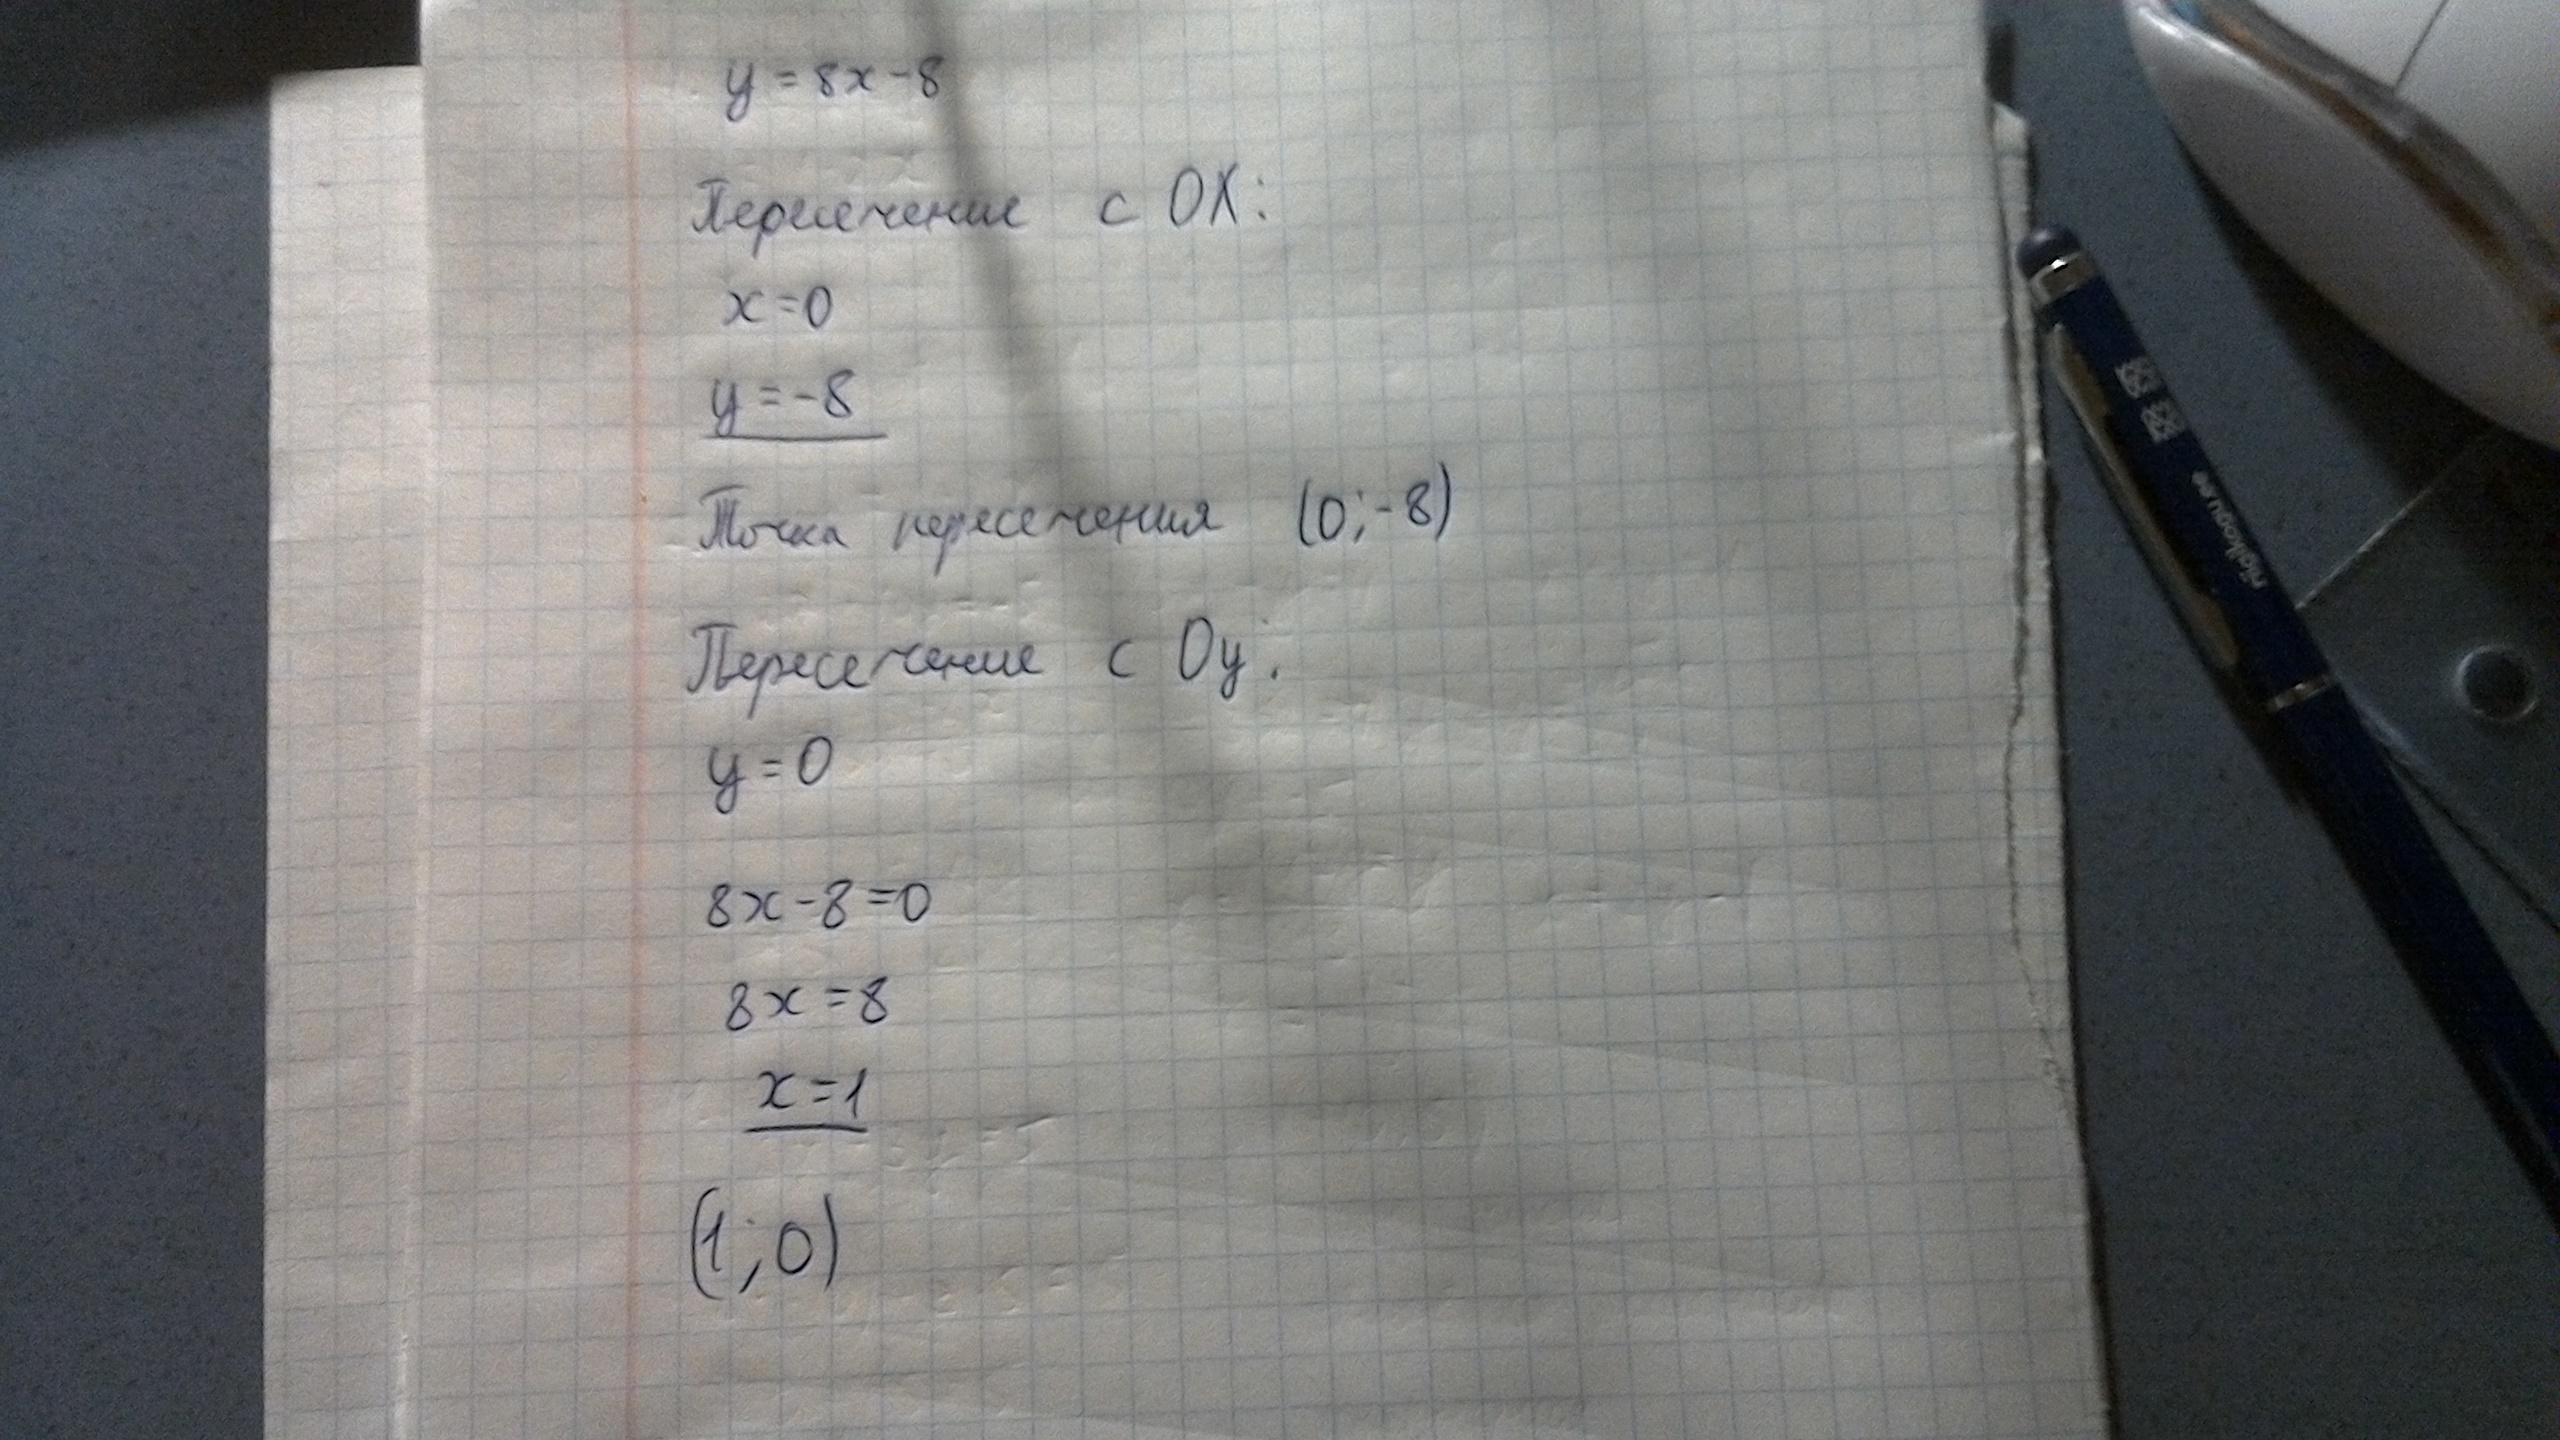 y = 8x - 8
Пересечение с OX:
x = 0
y = -8
Точка пересечения (0; -8)
Пересечение с Oy:
y = 0
8x - 8 = 0
8x = 8
x = 1
(1; 0)